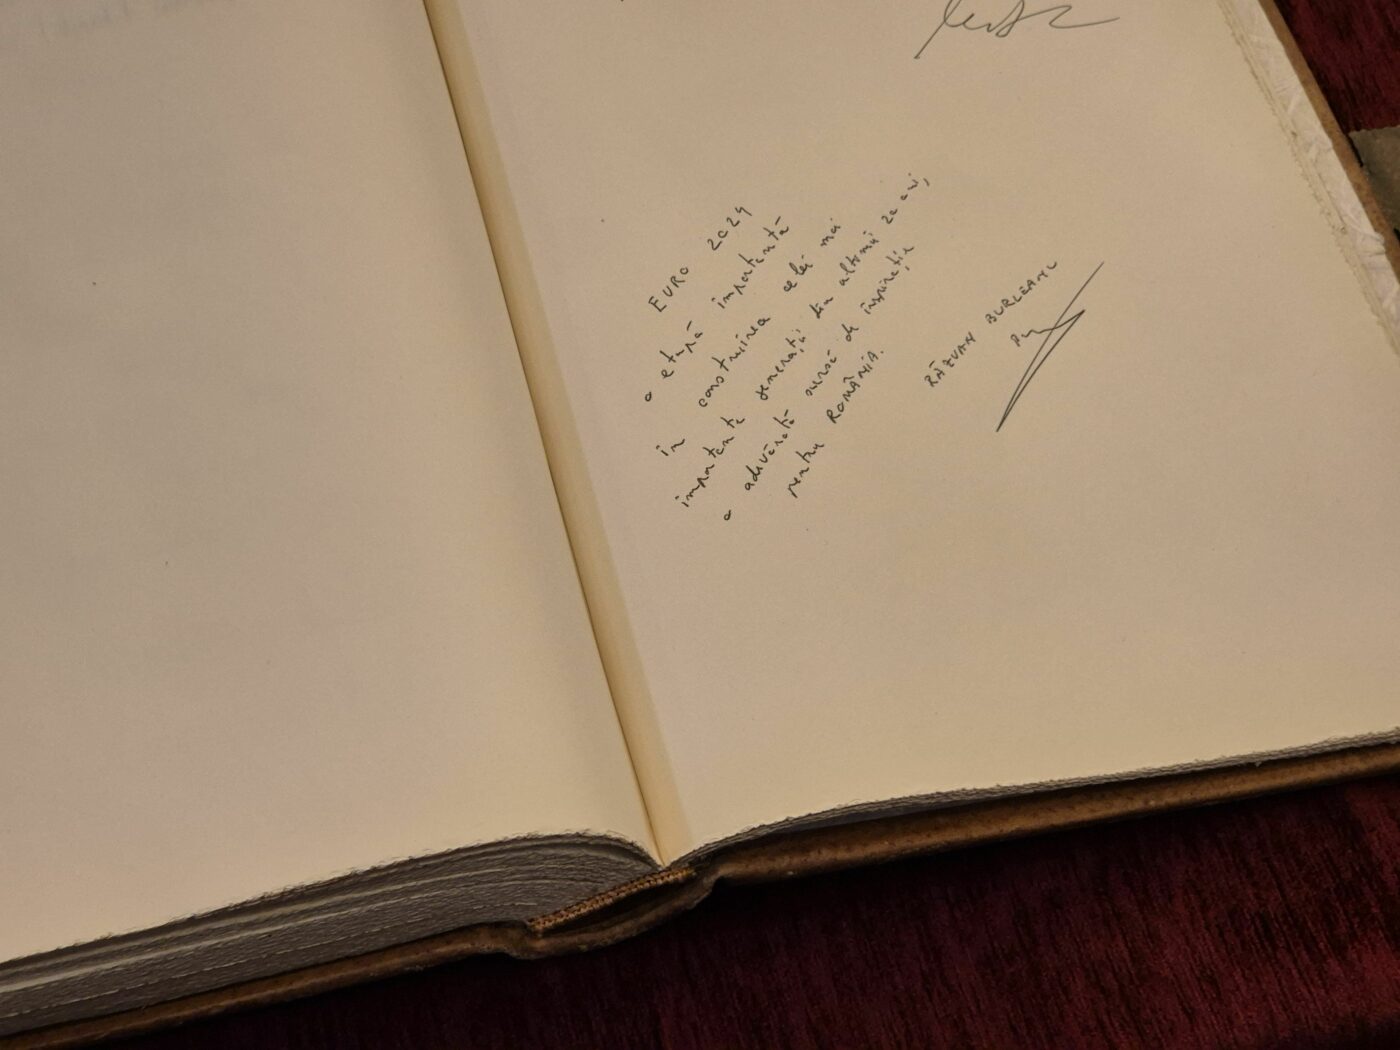 EURO 2024
o etapă importantă
în construirea celei mai
importante generații din ultimii 20 ani,
o adevărată sursă de inspirație
pentru ROMÂNIA.
RĂZVAN BURLEANU